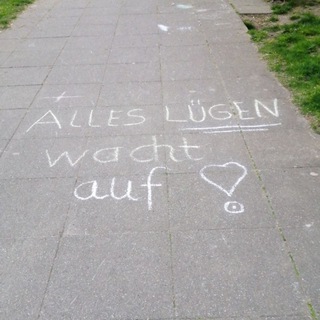 ALLES LÜGEN
wacht
auf